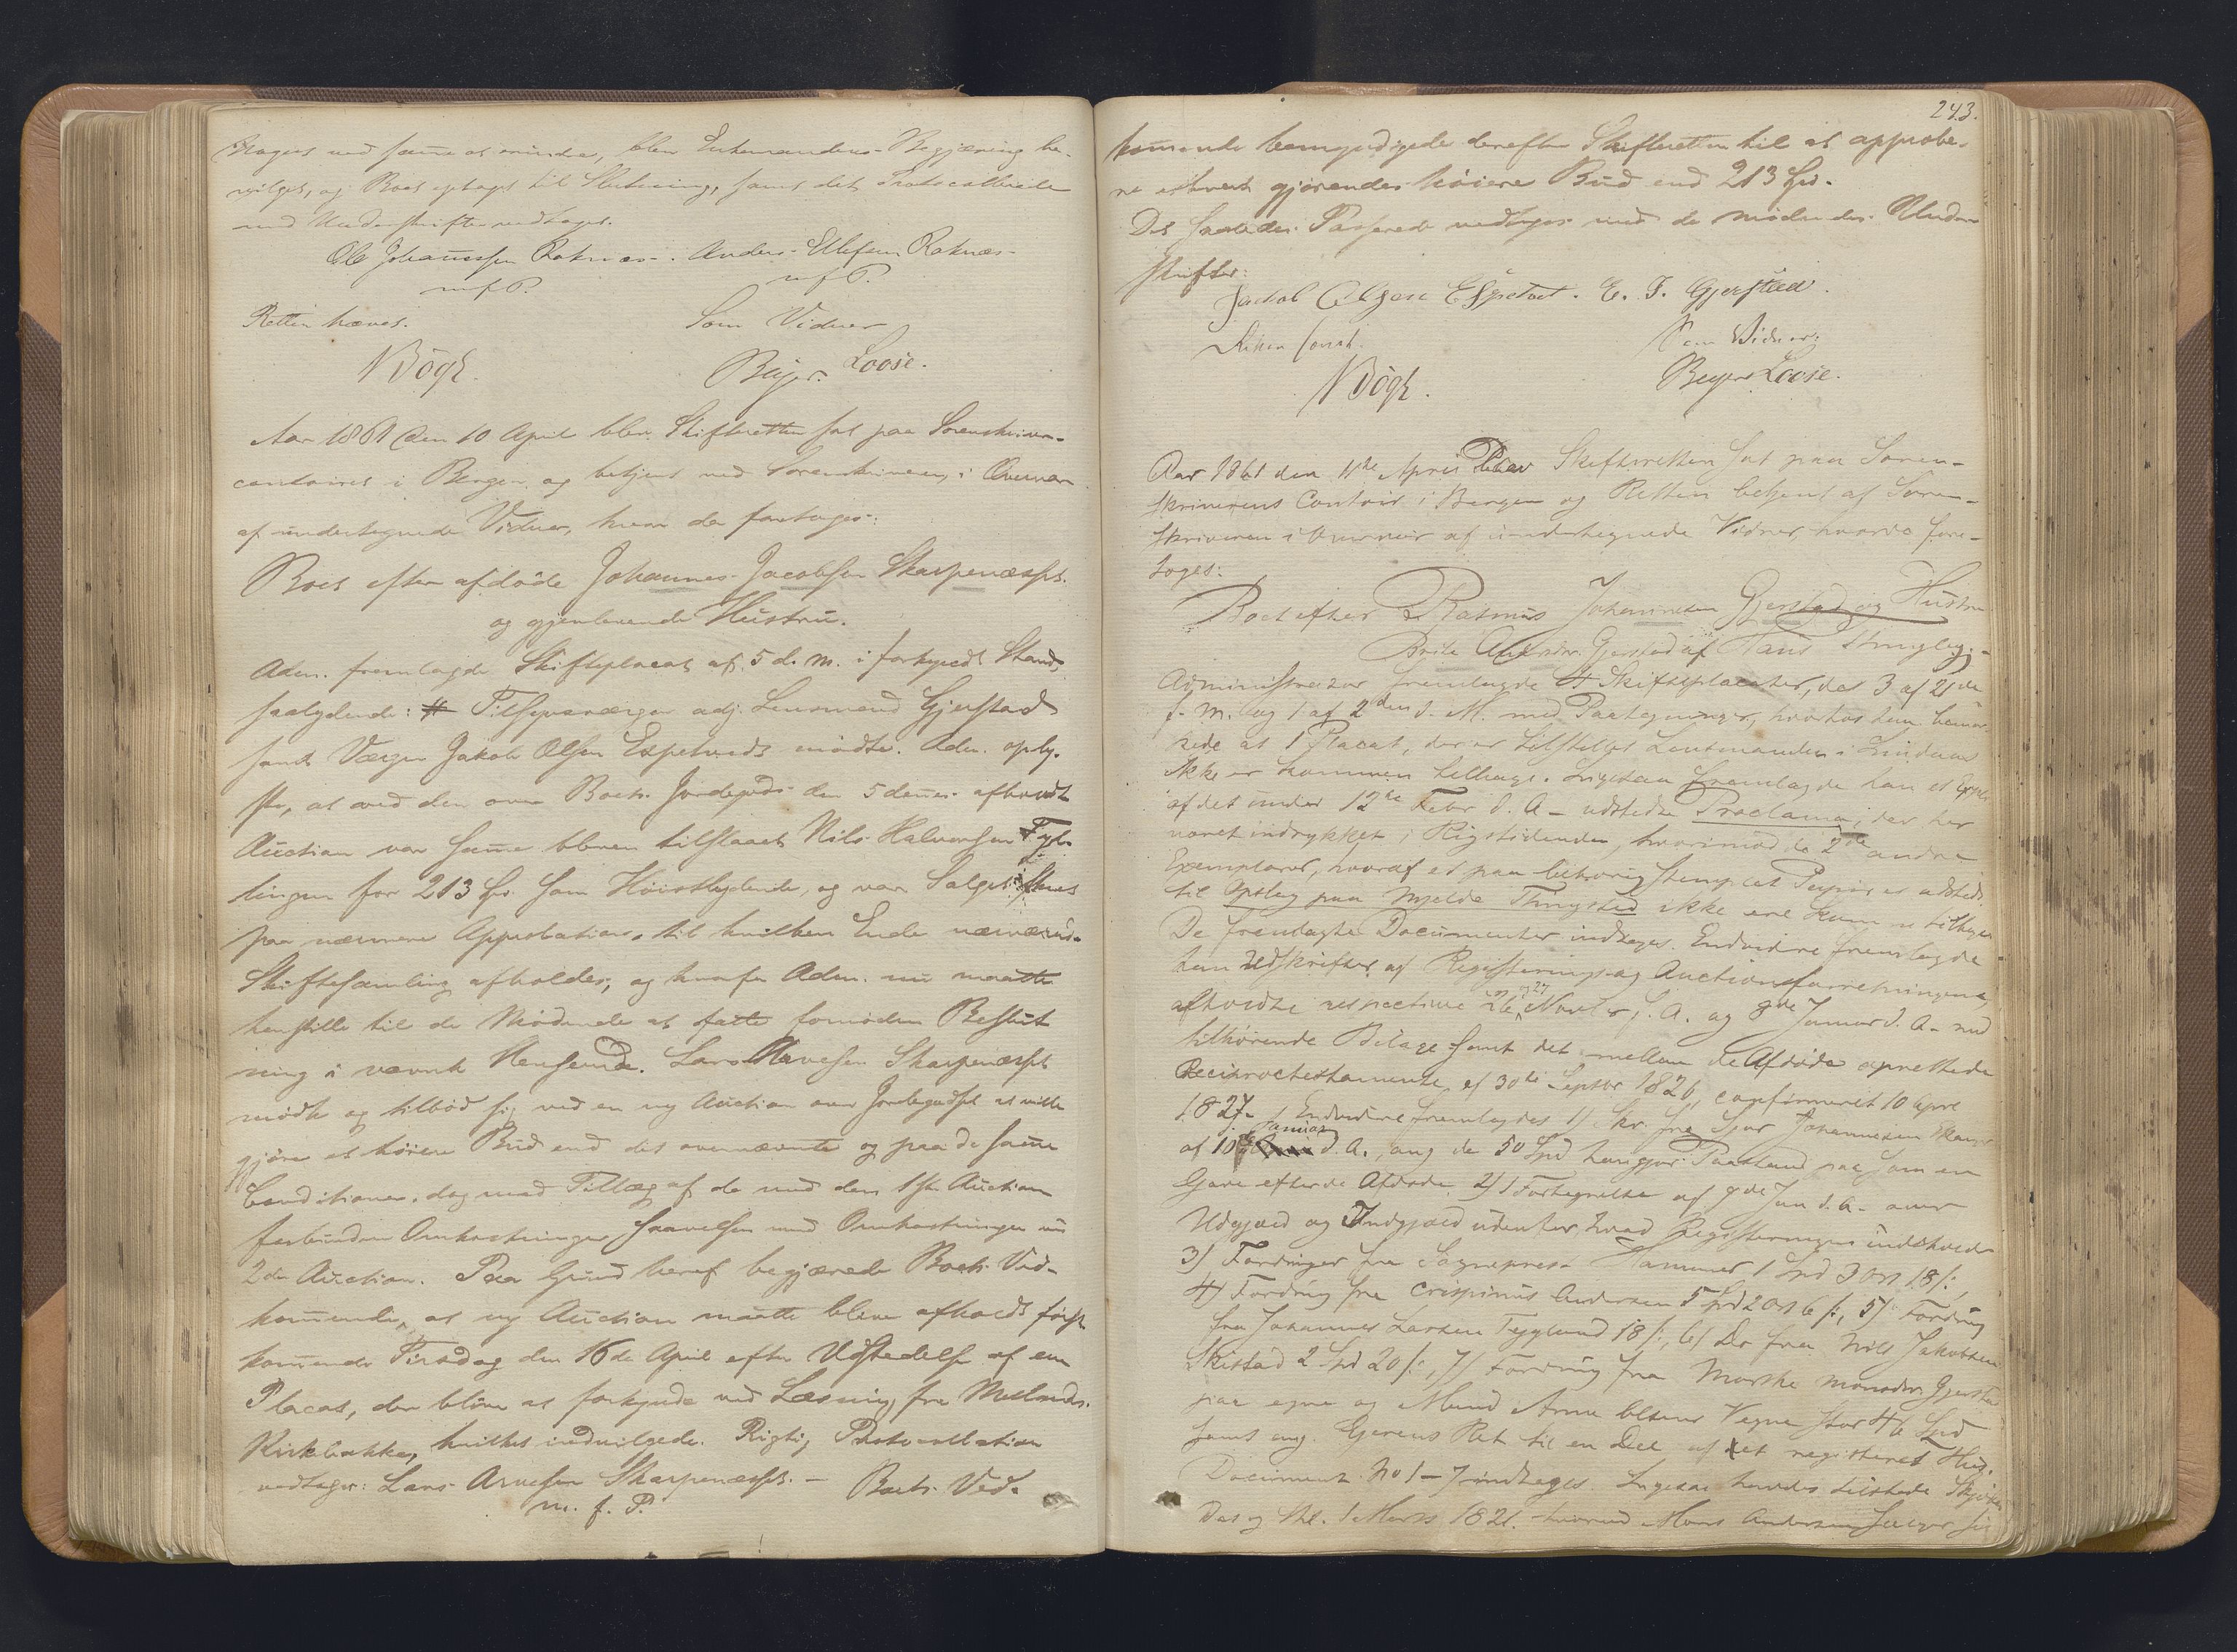 drages ved samme at erindre, blev Enkemandens Begjæring be-
vilget, og Boet optaget til Slutning, samt det Protocollerede
med Underskrifter vedtaget.
Ole Johannessen Roknæs. Anders Ellefsen Roknæs.
m. f. P. m. f. P.
Retten hævet. Som Vidner
NBögh. Beyer. Loose.
Aar 1861 den 10 April blev Skifteretten sat paa Sorenskriver-
contoiret i Bergen og betjent ved Sorenskriveren, i Overvær
af undertegnede Vidner, hvor da foretoges:
Boet efter afdöde Johannes Jacobsen Skarpenæsset
og gjenlevende Hustru.
Adm. fremlagde Skifteplacat af 5 d. M. i forkyndt Stand,
saalydende: # Tilsynsværge adj. Lensmand Gjerstad
samt Værgen Jakob Olsen Espetvedt mödte. Adm. oply-
ste, at ved den over Boets Jordegods den 5 dennes afholdte
Auction var samme bleven tilslaaet Nils Halvorsen Tyt-
tingen for 213 Spd. som Höistbydende, og var Salget skeet
paa nærmere Approbation, til hvilken Ende nærværende
Skiftesamling afholdes, og hvorfor Adm. nu maatte
henstille til de Mödende at fatte fornöden Beslut-
ning i nævnte Henseende. Lars Arnesen Skarpenæsset
mödte og tilböd sig ved en ny Auction over Jordegodset at ville
gjöre et höiere Bud end det ovennævnte og paa de samme
Conditioner, dog med Tillæg af de med den 1ste Auction
forbundne Omkostninger saavelsom med Omkostninger ved
2den Auction. Paa Grund heraf begjærede Boets Ved-
kommende, at ny Auction maatte blive afholdt först-
kommende Tirsdag den 16de April efter Udstedelse af en
Placat, der bliver at forkynde ved Læsning fra Meelands
Kirkebakke, hvilket indvilgedes. Rigtig Protocollation
vedtages: Lars Arnesen Skarpenæsset. — Boets Ved-
m. f. P.
243.
kommende bemyndigede derefter Skifteretten til at approbe-
re ethvert gjörendes höiere Bud end 213 Spd.
Det saaledes Passerede vedtoges med de Mödendes Under-
skrifter:
Jakob Olsen Espetvet. E. J. Gjerstad.
Retten hævet. Som Vidner:
NBögh. Beyer Loose.
Aar 1861 den 11te April blev Skifteretten sat paa Soren-
skriverens Contoir i Bergen og Retten betjent af Soren-
skriveren i Overvær af undertegnede Vidner, hvorda fore-
toges:
Boet efter Rasmus Johannesen Gjerstad og Hustru
Brite Andersdr. Gjerstad af Hans Tinglag.
Administrator fremlagde 4 Skifteplacater, de 3 af 21de
f. M. og 1 af 2den d. M. med Paategninger, hvorhos han bemær-
kede at 1 Placat, der er tilstillet Lensmanden i Lindaas
ikke er kommen tilbage. Ligesaa fremlagde han et Expl.
af det under 12te Febr d. A. udstedte Proclama, der har
været indrykket i Rigstidenden, hvorimod de 2de andre
Exemplarer, hvoraf et paa behörig stemplet Papir er udstedt
til Opslag paa Mjelde Thingsted ikke ere komne tilbage.
De fremlagte Documenter indtages. Endvidere fremlagde
han Udskrifter af Registrerings- og Auctionsforretningerne
afholdte respective 26 og 27 Novbr f. A. og 8de Januar d. A. med
tilhörende Bilage samt det mellem de Afdöde oprettede
Reciproctestamente af 30te Septbr 1826, confirmeret 10 April
1827. Endvidere fremlagdes 1) Skr. fra Sjur Johannesen
af 10de Januar d. A., ang. de 50 Spd han gjör Paastand paa som en
Gave efter de Afdöde, 2) 1 Fortegnelse af 9de Jan d. A. over
Udgjæld og Indgjæld udenfor, hvad Registreringen indeholder
3) Fordringer fra Sognepræst Hammer 1 Spd 3 Ort 18 s:,
4) Fordring fra Crispinus Andersen 5 Spd 2 Ort 6 s:, 5) Fordring
fra Johannes Larsen Tyglund 18 s:, 6) Do fra Nils Jakobsen
Skistad 2 Spd 20 s:, 7) Fordring fra Marthe Monsdr. Gjerstad
paa egne og Mand Arne Olsens Vegne stor 46 Spd
samt ang. Ejerens Ret til en Deel af et registreret Huus.
Document No 1–7 indtages. Ligesaa havdes tilstede Skjöte
Dat. og Thl. 1 Marts 1821. hvorved Mons Andersen sælger sin